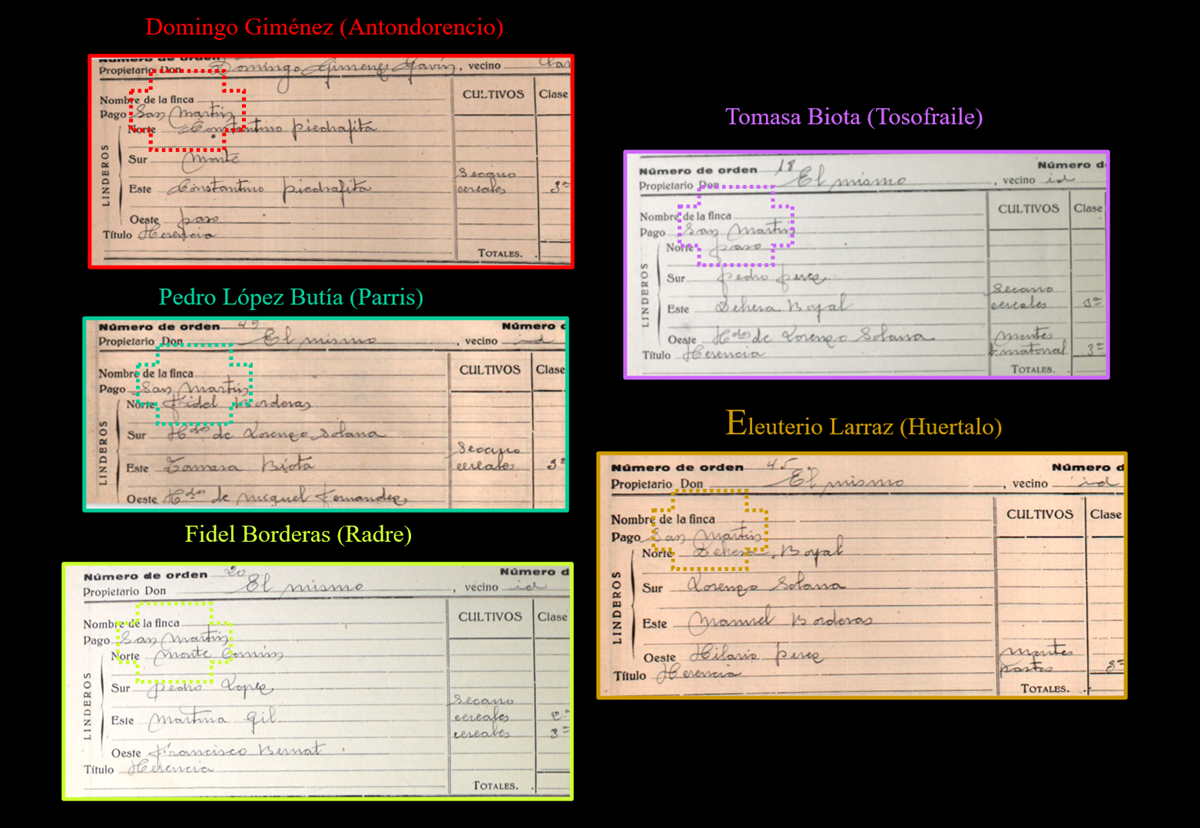 Domingo Giménez (Antondorencio)
Número de orden
Propietario Don Domingo Gimenez Gavín, vecino
Nombre de la finca
CULTIVOS Clase
Pago San Martín
LINDEROS
Norte Constantino piedrafita
Sur Monte
Este Constantino piedrafita
Secano
cereales 3ª
Oeste paso
Título Herencia
TOTALES.
Pedro López Butía (Parris)
Número de orden 49 Número d
Propietario Don El mismo, vecino id
Nombre de la finca
CULTIVOS Clase
Pago San Martín
LINDEROS
Norte Fidel Borderas
Sur Hdos de Lorenzo Solana
Este Tomasa Biota
Secano
cereales 3ª
Oeste Hdos de Miguel Fernandez
Fidel Borderas (Radre)
Número de orden 20 Número d
Propietario Don El mismo, vecino id
Nombre de la finca
CULTIVOS Clase
Pago San Martín
LINDEROS
Norte Monte Común
Sur pedro Lopez
Este Martina Gil
Secano
cereales 2ª
cereales 3ª
Oeste Francisco Bernat
Título Herencia
TOTALES.
Tomasa Biota (Tosofraile)
Número de orden 18 Número d
Propietario Don El mismo, vecino id
Nombre de la finca
CULTIVOS Clase
Pago San Martín
LINDEROS
Norte paso
Sur pedro perez
Este Dehesa Boyal
Secano
cereales 3ª
Oeste Hdos de Lorenzo Solana
Montes
matorral 3ª
Título Herencia
TOTALES.
Eleuterio Larraz (Huertalo)
Número de orden 45 Número d
Propietario Don El mismo, vecino id
Nombre de la finca
CULTIVOS Clase
Pago San Martín
LINDEROS
Norte Dehesa Boyal
Sur Lorenzo Solana
Este Manuel Borderas
Oeste Hilario perez
Montes
pastos 3ª
Título Herencia
TOTALES.